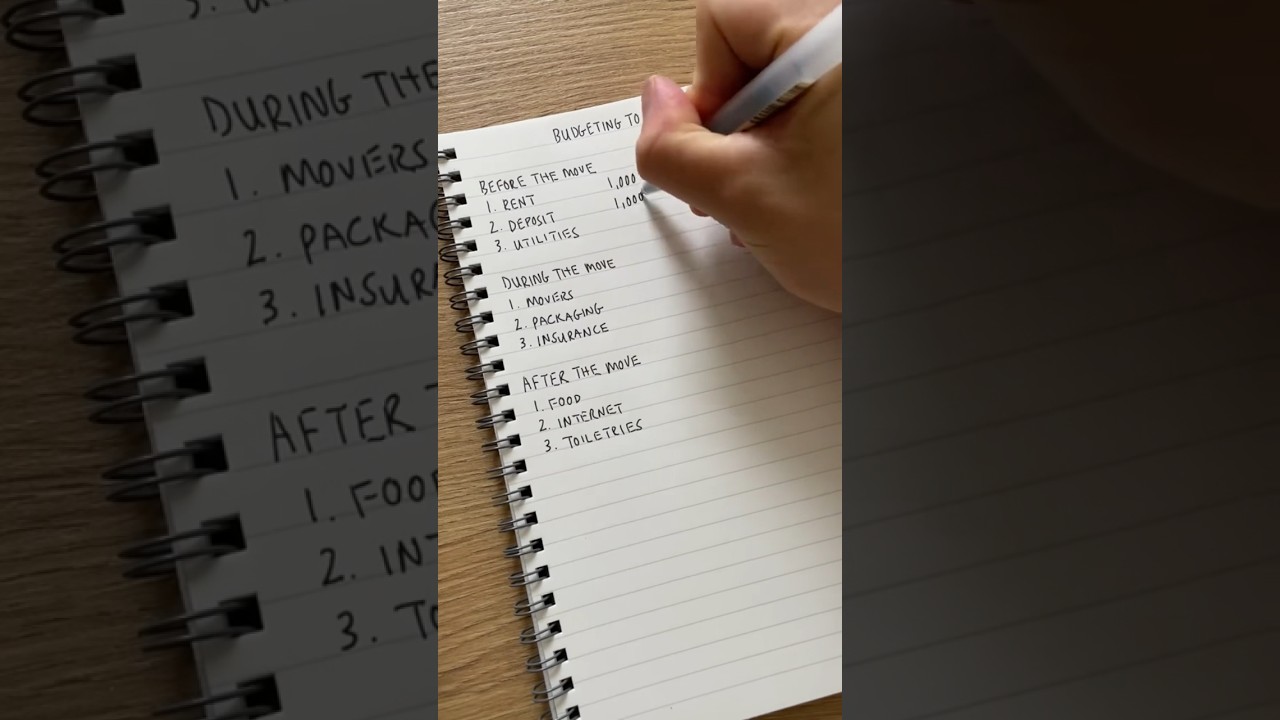 BUDGETING TO
BEFORE THE MOVE
1. RENT 1,000
2. DEPOSIT 1,000
3. UTILITIES
DURING THE MOVE
1. MOVERS
2. PACKAGING
3. INSURANCE
AFTER THE MOVE
1. FOOD
2. INTERNET
3. TOILETRIES